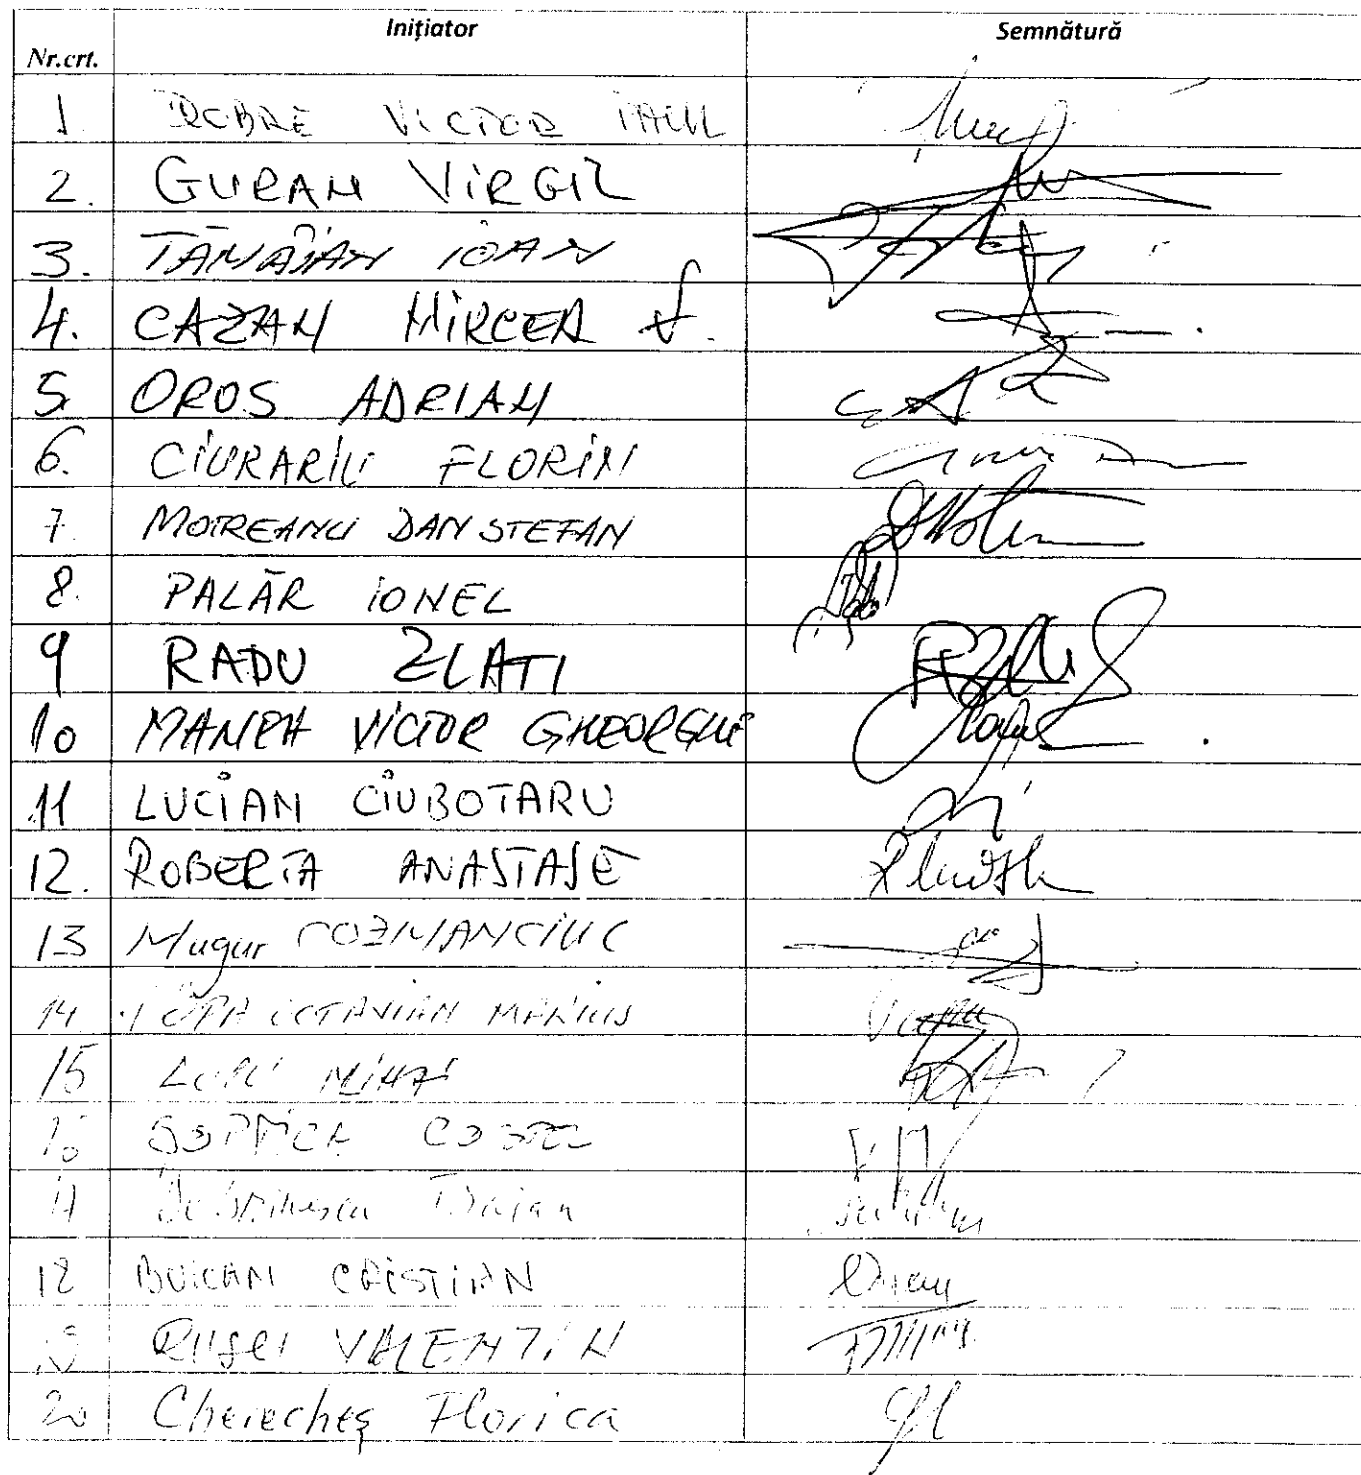 Inițiator Semnătură
Nr.crt.
1. DOBRE VICTOR PAUL
2. GURAN VIRGIL
3. IOAN
4. CAZAN MIRCEA V.
5 OROS ADRIAN
6. CIURARIU FLORIN
7. MOTREANU DAN STEFAN
8. PALĂR IONEL
9 RADU ZLATI
10 MANEA VICTOR GHEORGHE
11 LUCIAN CIUBOTARU
12. ROBERTA ANASTASE
13 Mugur COZMANCIUC
14 POPA OCTAVIAN MARIUS
15 LUPU MIHAI
16 ȘOPTICĂ COSTEL
17 Dobrinescu Traian
18 BUICAN CRISTIAN
19 VALENTIN
20 Cherecheș Florica